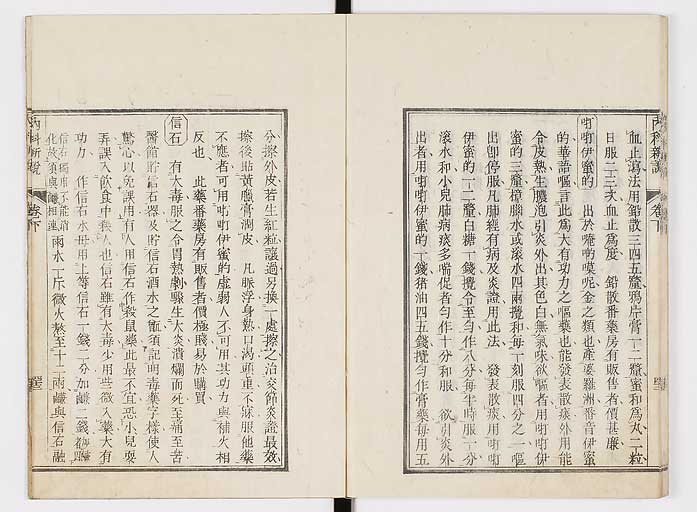 內科新說
卷下
血止瀉法用鉛散三四五釐鴉片膏一二釐蜜和為丸二粒
日服二三次血止為度 鉛散番藥房有販售者價甚廉
吐吐伊蜜的 出於唵啲嗼呢金之類也產婆羅洲番音伊蜜
的華語嘔言此為大有功力之嘔藥也能發表散痰外用能
令皮熱生膿泡引炎外出其色白無氣味欲嘔者用吐吐伊
蜜的三釐樟腦水或滾水四兩攪和每一刻服四分之一嘔
出即停服凡肺經有病及炎證用此法 發表散痰用吐吐
伊蜜的一二釐白糖一錢攪令至勻作八分每半時服一分
滾水和小兒肺病痰多喘促者勻作十分和服 欲引炎外
出者用吐吐伊蜜的一錢猪油四五錢攪勻作膏藥每用五
分擦外皮若生紅粒讓過另換一處擦之治炎節炎證最效
擦後貼黃蠟膏潤皮 凡脈浮身熱口渴頭重不寐服他藥
不應者可用吐吐伊蜜的虛弱人不可用其功力與補火相
反也 此藥番藥房有販售者價極賤易於購買
信石 有大毒服之令胃熱劇騷生大炎潰爛而死至痛至苦
醫館貯信石器及貯信石酒水之甎須記明毒藥字樣使人
驚心以免誤用有人用信石作殺鼠藥此最不宜恐小兒耍
弄誤入飲食中殺人也信石雖有大毒少用些微入藥大有
功力 作信石水母用上等信石一錢二分加鹻二錢
信石獨用不能消
化故須與鹻相連
雨水一斤微火熬至十二兩鹻與信石融
內科新說
卷下